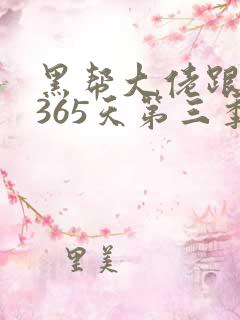 黑帮大佬跟
365天第三季
里美